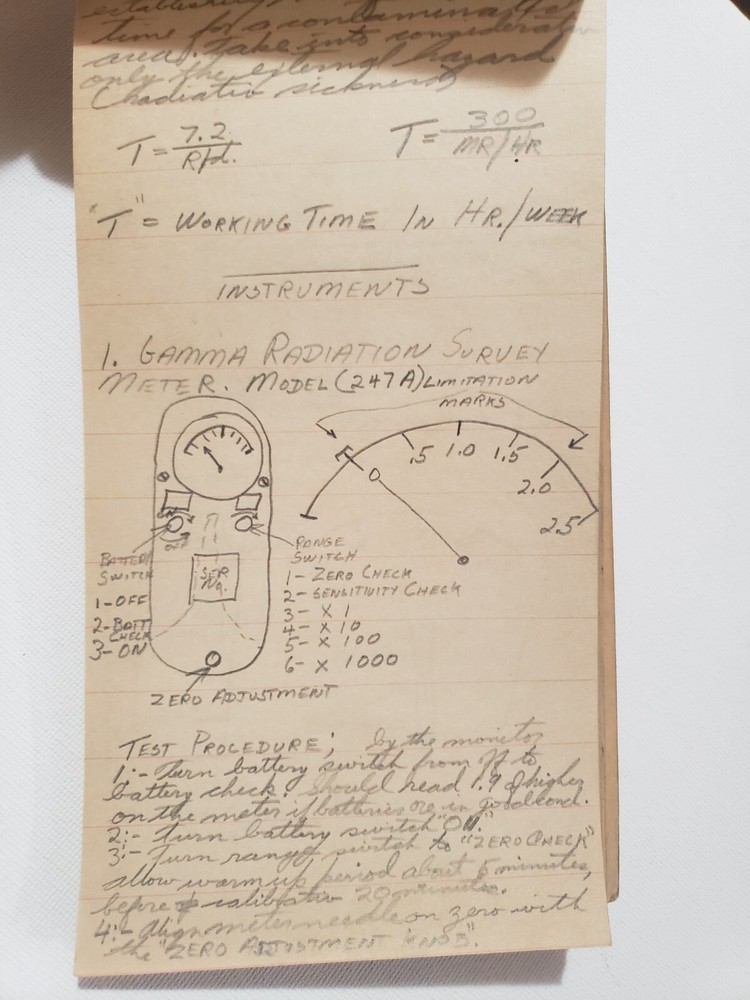 establishing
time for a contaminated
area. Take into consideration
only the external hazard
(radiation sickness)
T = 7.2 / R/d.
T = 300 / MR/HR
"T" = WORKING TIME IN HR./WEEK
INSTRUMENTS
1. GAMMA RADIATION SURVEY
METER. MODEL (247A)
LIMITATION
MARKS
0
.5
1.0
1.5
2.0
2.5
ON
OFF
BATTERY
SWITCH
1-OFF
2-BATT
CHECK
3-ON
SER
No.
RANGE
SWITCH
1- ZERO CHECK
2- SENSITIVITY CHECK
3- X 1
4- X 10
5- X 100
6- X 1000
ZERO ADJUSTMENT
TEST PROCEDURE; by the monitor
1:- Turn battery switch from off to
battery check. Should read 1.9 or higher
on the meter if batteries are in good cond.
2:- Turn battery switch "ON."
3:- Turn range switch to "ZERO CHECK"
allow warm up period about 5 minutes,
before calibration 20 minutes.
4:- Align meter needle on zero with
the "ZERO ADJUSTMENT KNOB".